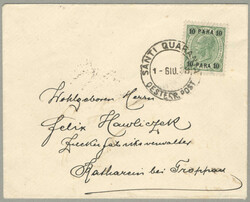 10 PARA 10
10 PARA 10
SANTI QUARANTA
OESTERR. POST
Wohlgeboren Herrn
Felix Hawliczek
Zuckerfabriksverwalter
Katharein bei Troppau